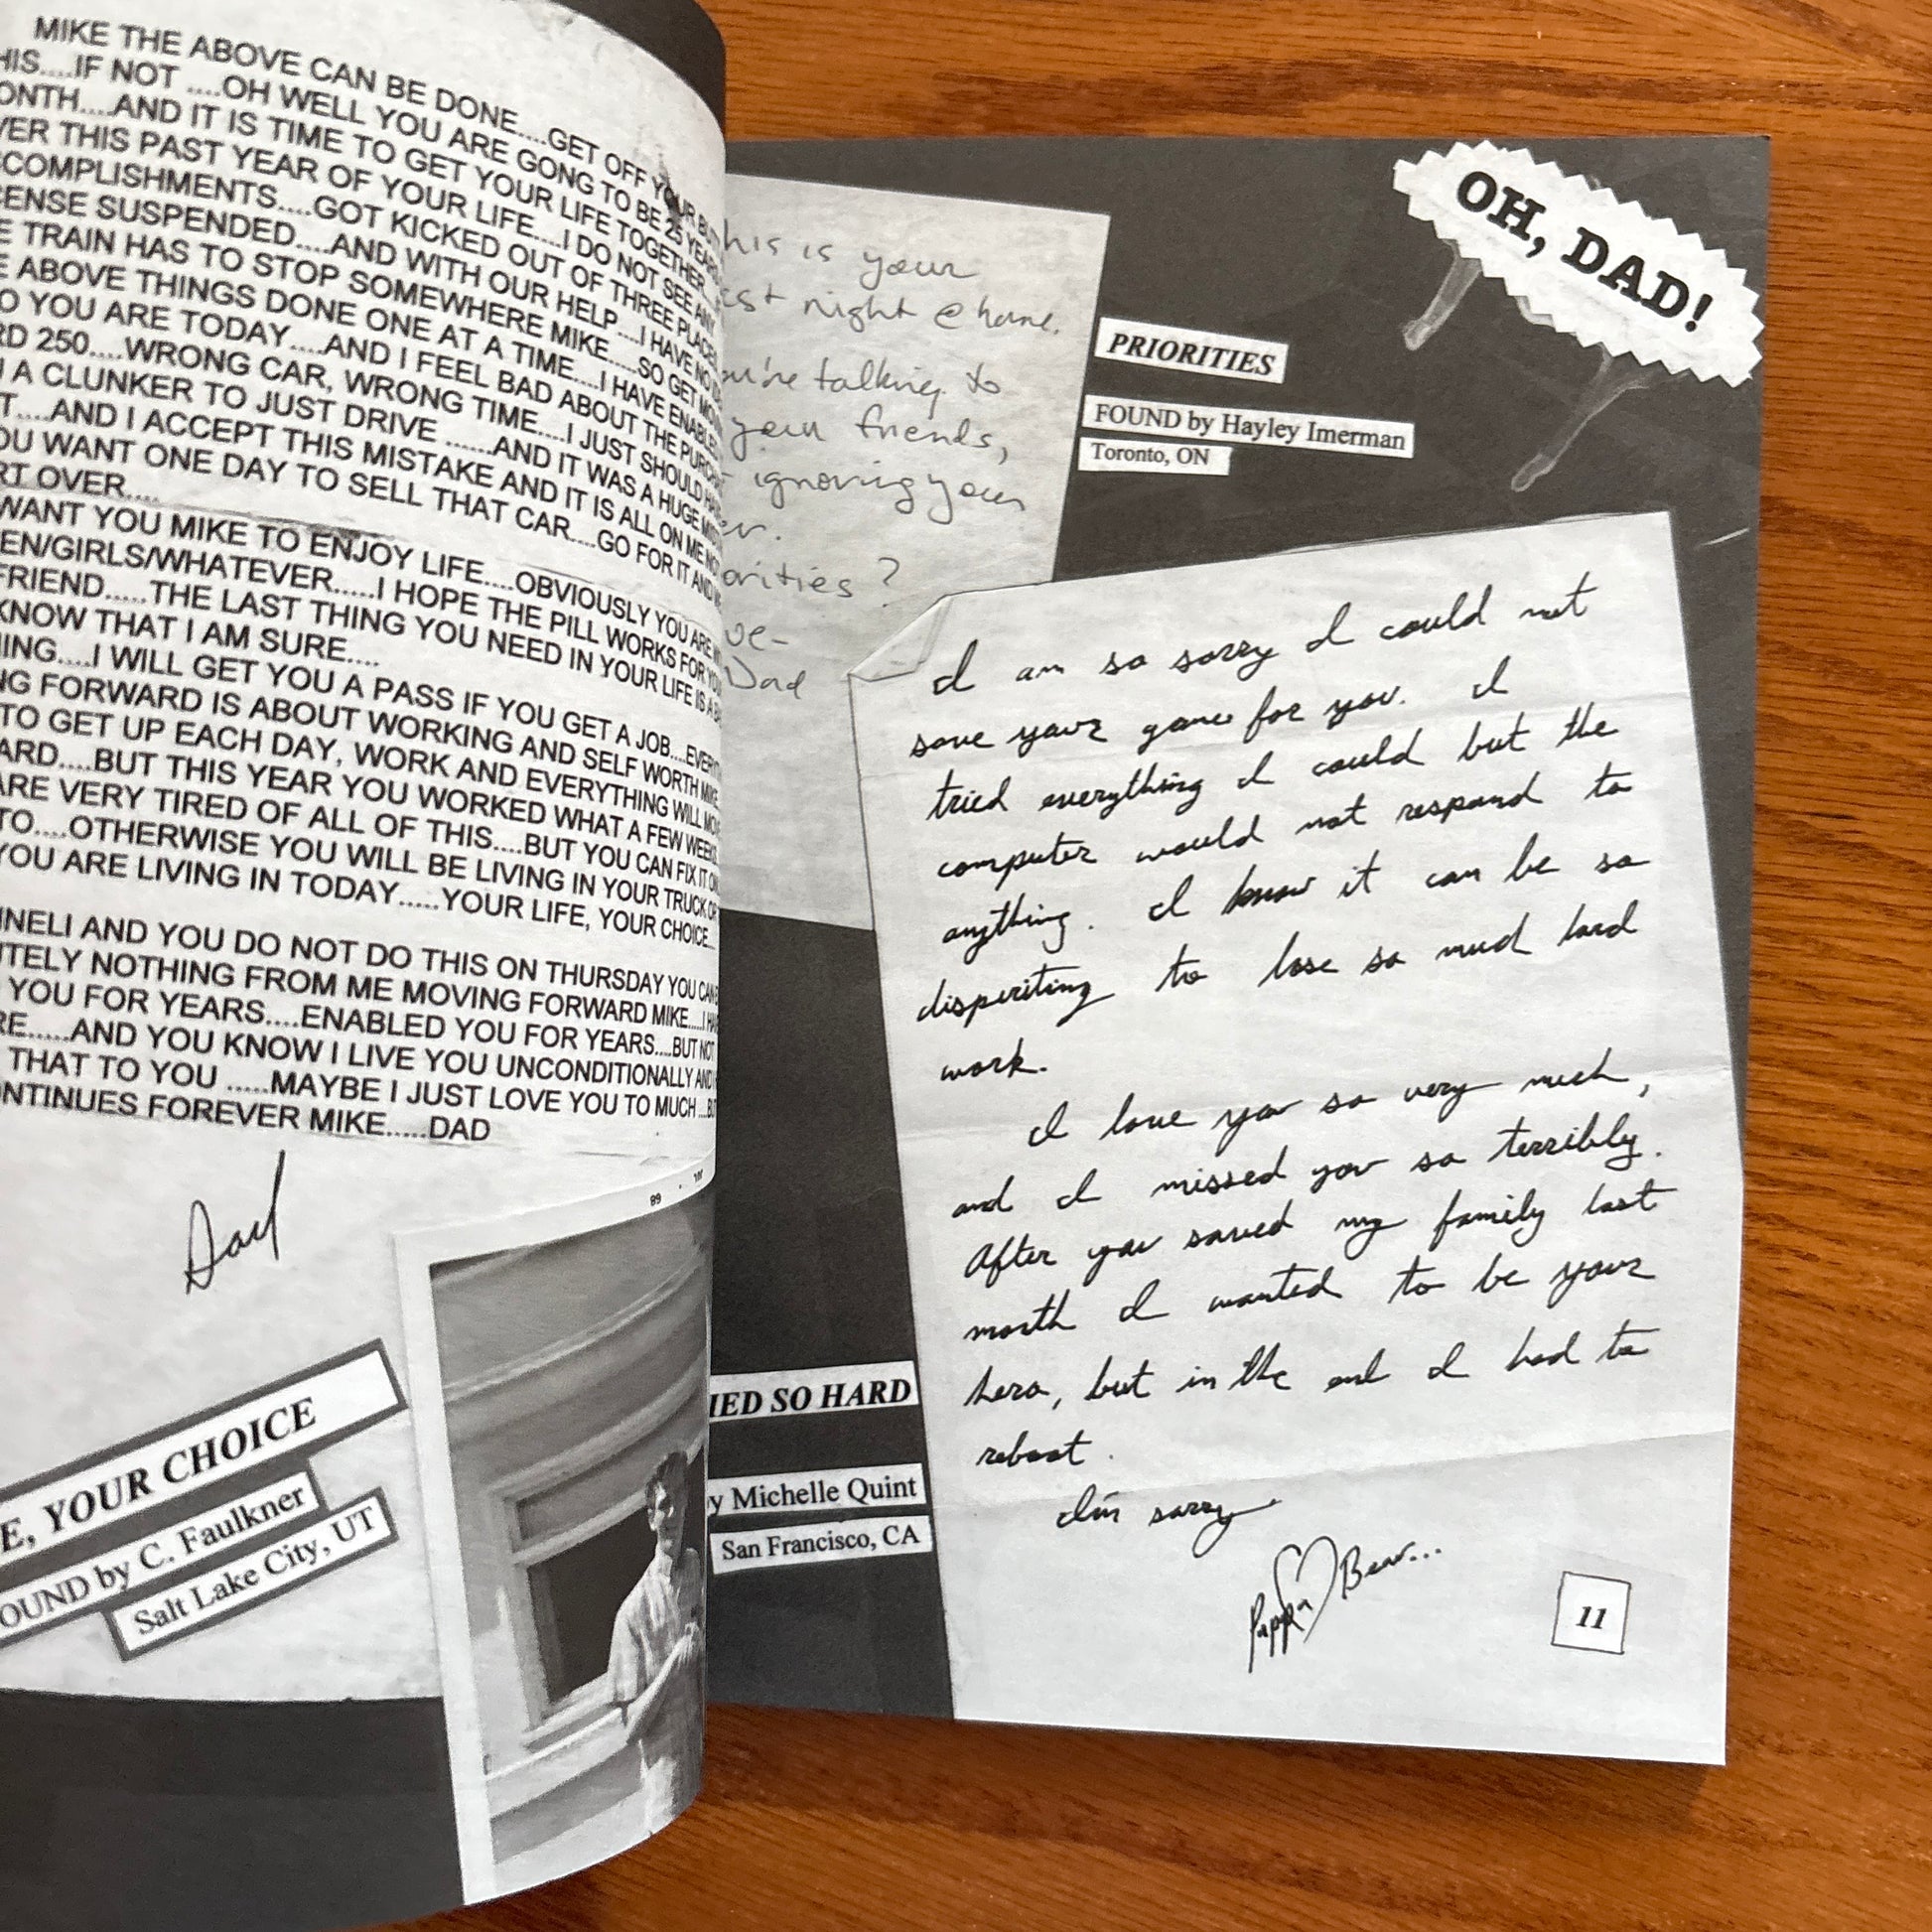 MIKE THE ABOVE CAN BE DONE....GET OFF YOUR BUTT
HIS....IF NOT ....OH WELL YOU ARE GONG TO BE 25 YEARS
ONTH....AND IT IS TIME TO GET YOUR LIFE TOGETHER....
VER THIS PAST YEAR OF YOUR LIFE....I DO NOT SEE ANY
CCOMPLISHMENTS....GOT KICKED OUT OF THREE PLACES
CENSE SUSPENDED....AND WITH OUR HELP....I HAVE NO
E TRAIN HAS TO STOP SOMEWHERE MIKE....SO GET MOVIN
E ABOVE THINGS DONE ONE AT A TIME....I HAVE ENABLED
O YOU ARE TODAY....AND I FEEL BAD ABOUT THE PURCHA
RD 250....WRONG CAR, WRONG TIME....I JUST SHOULD HAVE
A CLUNKER TO JUST DRIVE ......AND IT WAS A HUGE MIST
T....AND I ACCEPT THIS MISTAKE AND IT IS ALL ON ME NOT
OU WANT ONE DAY TO SELL THAT CAR....GO FOR IT AND
RT OVER....
WANT YOU MIKE TO ENJOY LIFE....OBVIOUSLY YOU ARE
EN/GIRLS/WHATEVER.....I HOPE THE PILL WORKS FOR YOU
FRIEND.....THE LAST THING YOU NEED IN YOUR LIFE IS A
KNOW THAT I AM SURE....
HING....I WILL GET YOU A PASS IF YOU GET A JOB....EVERYTH
NG FORWARD IS ABOUT WORKING AND SELF WORTH MIKE
TO GET UP EACH DAY, WORK AND EVERYTHING WILL MOV
ARD....BUT THIS YEAR YOU WORKED WHAT A FEW WEEKS
ARE VERY TIRED OF ALL OF THIS....BUT YOU CAN FIX IT
TO....OTHERWISE YOU WILL BE LIVING IN YOUR TRUCK OR
YOU ARE LIVING IN TODAY.....YOUR LIFE, YOUR CHOICE...
NELI AND YOU DO NOT DO THIS ON THURSDAY YOU CAN
TELY NOTHING FROM ME MOVING FORWARD MIKE....I HA
YOU FOR YEARS....ENABLED YOU FOR YEARS....BUT NOT
RE.....AND YOU KNOW I LIVE YOU UNCONDITIONALLY AND
THAT TO YOU .....MAYBE I JUST LOVE YOU TO MUCH ...BU
ONTINUES FOREVER MIKE.....DAD
Dad
E, YOUR CHOICE
OUND by C. Faulkner
Salt Lake City, UT
OH, DAD!
his is your
st night @ home.
ou're talking to
your friends,
ignoring your
er.
orities?
ve-
Dad
PRIORITIES
FOUND by Hayley Imerman
Toronto, ON
I am so sorry I could not
save your game for you. I
tried everything I could but the
computer would not respond to
anything. I know it can be so
dispiriting to lose so much hard
work.
I love you so very much,
and I missed you so terribly.
After you saved my family last
month I wanted to be your
hero, but in the end I had to
reboot.
I'm sorry
Pappa Bear...
IED SO HARD
y Michelle Quint
San Francisco, CA
11